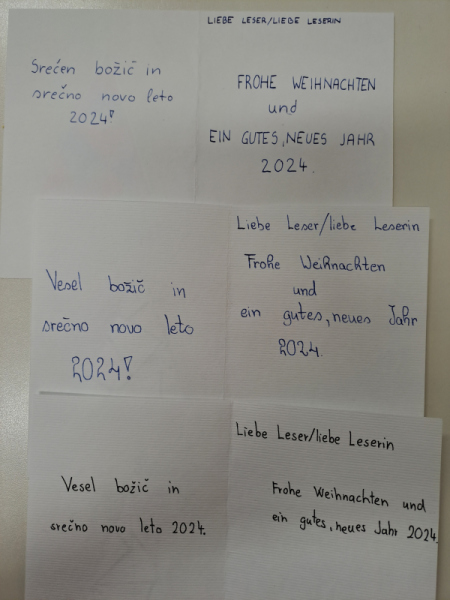 Srećen božič in
srečno novo leto
2024!
LIEBE LESER/LIEBE LESERIN
FROHE WEIHNACHTEN
und
EIN GUTES, NEUES JAHR
2024.
Vesel božič in
srečno novo leto
2024!
Liebe Leser/liebe Leserin
Frohe Weihnachten
und
ein gutes, neues Jahr
2024.
Vesel božič in
srečno novo leto 2024.
Liebe Leser/liebe Leserin
Frohe Weihnachten und
ein gutes, neues Jahr 2024.